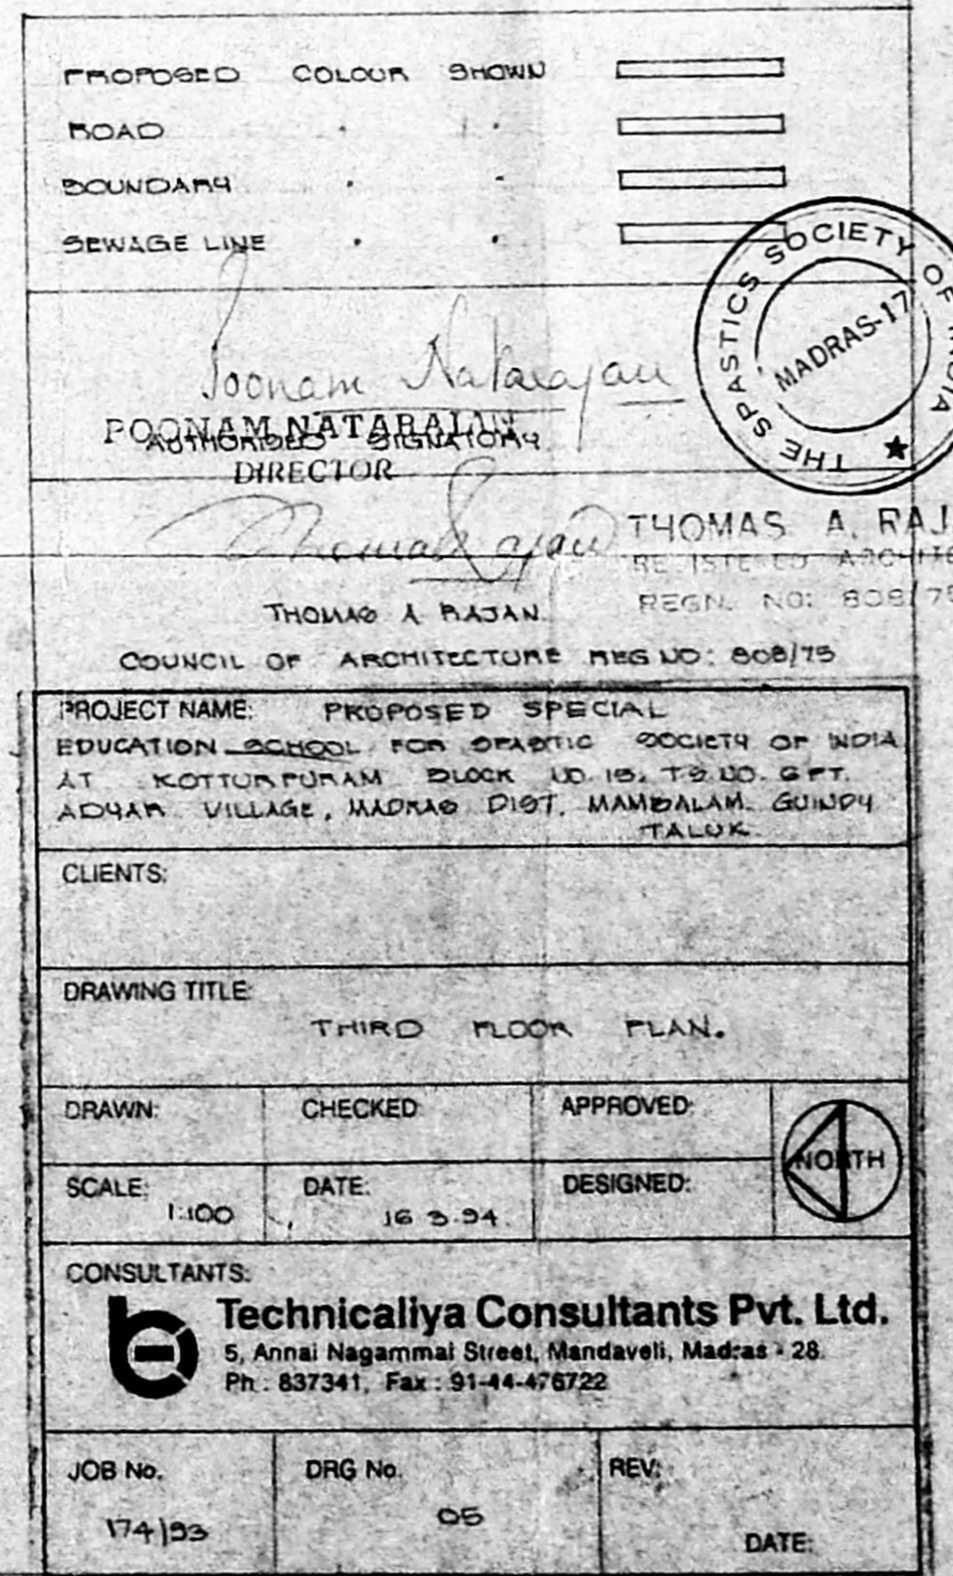 PROPOSED COLOUR SHOWN
ROAD " "
BOUNDARY " "
SEWAGE LINE " "
THE SPASTICS SOCIETY OF INDIA
MADRAS-17
Poonam Natarajan
POONAM NATARAJAN
AUTHORISED SIGNATORY
DIRECTOR
Thomas Rajan
THOMAS A. RAJ
REGISTERED ARCHITE
REGN. NO: 808/75
THOMAS A RAJAN.
COUNCIL OF ARCHITECTURE REG NO: 808/75
PROJECT NAME: PROPOSED SPECIAL
EDUCATION SCHOOL FOR SPASTIC SOCIETY OF INDIA
AT KOTTURPURAM BLOCK NO. 15, TS NO. 6 PT.
ADYAR VILLAGE, MADRAS DIST. MAMBALAM. GUINDY
TALUK.
CLIENTS:
DRAWING TITLE:
THIRD FLOOR PLAN.
DRAWN:
CHECKED:
APPROVED:
NORTH
SCALE:
1:100
DATE:
16.3.94.
DESIGNED:
CONSULTANTS:
Technicaliya Consultants Pvt. Ltd.
5, Annai Nagammai Street, Mandaveli, Madras - 28.
Ph : 837341, Fax : 91-44-476722
JOB No.
174/93
DRG No.
05
REV:
DATE: